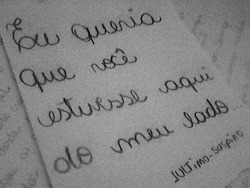 Eu queria
que você
estivesse aqui
do meu lado
1ULTIMO-SUSPIRO